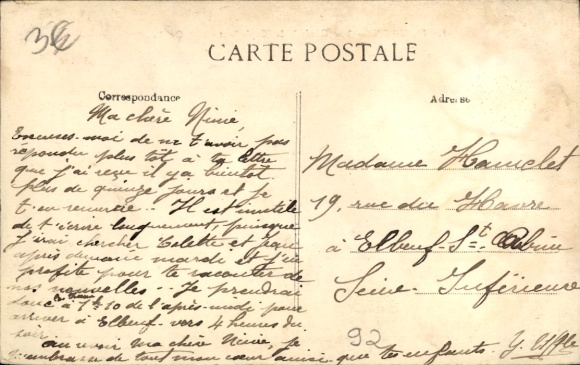 CARTE POSTALE
Correspondance
Adresse
Ma chère Ninie,
Excuses-moi de ne t'avoir pas
répondu plus tôt à ta lettre
que j'ai reçue il y a bientôt
plus de quinze jours et je
t'en remercie. - Il est inutile
de t'écrire longuement, puisque
j'irai chercher
après demain mardi et j'en
profite pour te raconter de
nos nouvelles. - Je prendrai
donc à 1h10 de l'après-midi pour
arriver à Elbeuf vers 4 heures du
soir.
au revoir ma chère Ninie, je
t'embrasse de tout mon cœur ainsi que tes enfants. Y.
Madame Hamelet
19, rue du Havre
à Elbeuf-St-Aubin
Seine-Inférieure
92